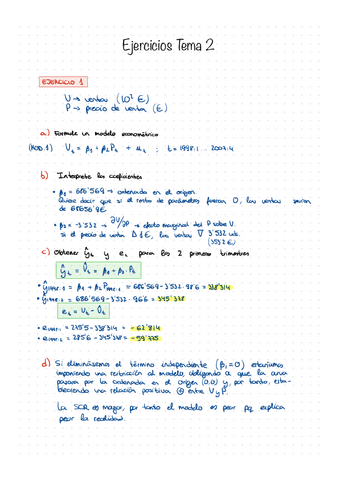 Ejercicios Tema 2
EJERCICIO 1
V → ventas (10² €)
P → precio de venta (€)
a) Formule un modelo econométrico
(MOD.1) Vt = β1 + β2Pt + ut ; t = 1998.1 ... 2007.4
b) Interprete los coeficientes
• β1 = 686'569 → ordenada en el origen.
Quiere decir que si el resto de parámetros fueran 0, las ventas serían
de 68656'9€
• β2 = -3'532 → ∂V/∂P → efecto marginal del P sobre V.
Si el precio de venta Δ 1€, las ventas ∇ 3'532 uds.
(353'2 €)
c) Obtener ŷt y et para los 2 primeros trimestres
ŷt = V̂t = β1 + β2 · Pt
• ŷ1998.1 = β1 + β2 P1998.1 = 686'569 - 3'532 · 98'6 = 338'314
• ŷ1998.2 = 686'569 - 3'532 · 96'6 = 345'378
et = Vt - V̂t
• e1998.1 = 275'5 - 338'314 = -62'814
• e1998.2 = 285'6 - 345'378 = -59'778
d) Si eliminásemos el término independiente (β1 = 0) estaríamos
imponiendo una restricción al modelo, obligando a que la curva
pasara por la ordenada en el origen (0,0) y, por tanto, esta-
bleciendo una relación positiva ⊕ entre V y P.
La SCR es mayor, por tanto el modelo es peor pq explica
peor la realidad.